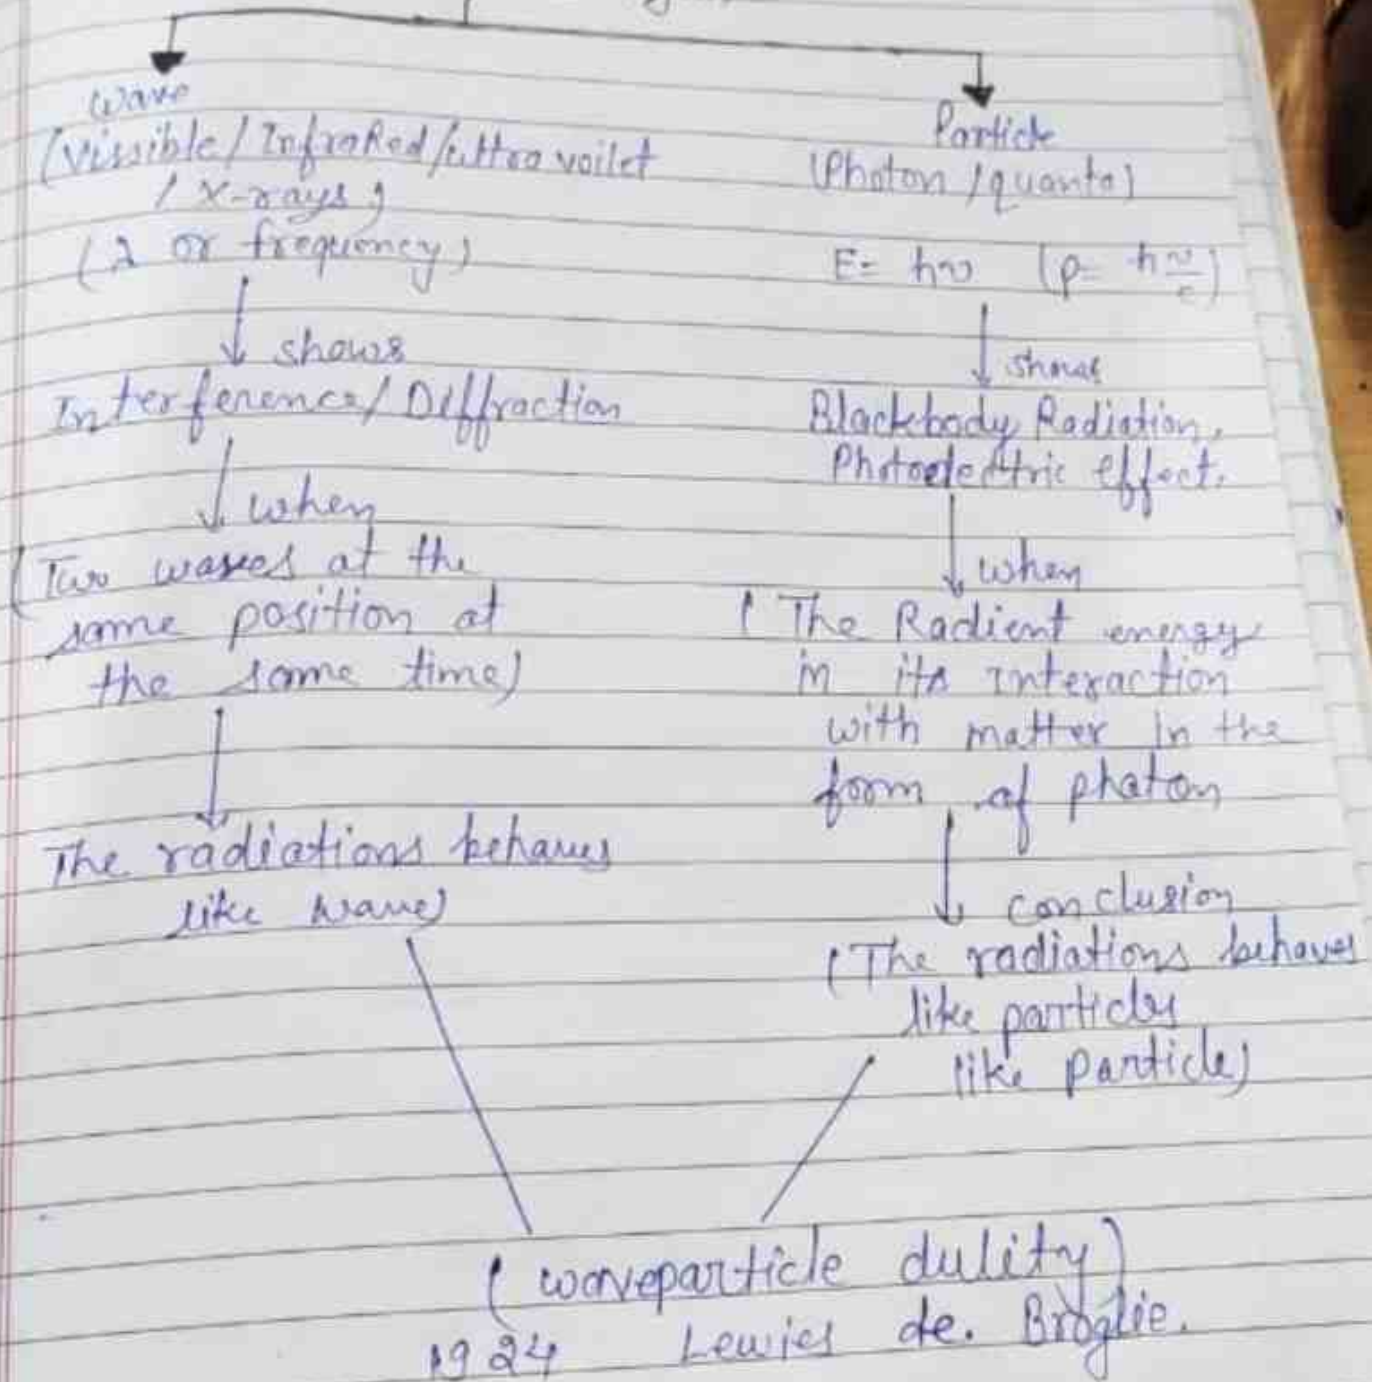 wave
(Vissible/Infrared/ultravoilet
/ X-rays)
(λ or frequency)
↓ shows
Interference/Diffraction
↓ when
(Two waves at the
same position at
the same time)
The radiations behaves
like wave)
Particle
(Photon/quanta)
E= hν (p= hν/c)
↓ shows
Blackbody Radiation,
Photoelectric effect.
↓ when
(The Radient energy
in its interaction
with matter in the
form of photon
↓ conclusion
(The radiations behaves
like particles
like particle)
(waveparticle dulity)
1924 Lewies de. Broglie.